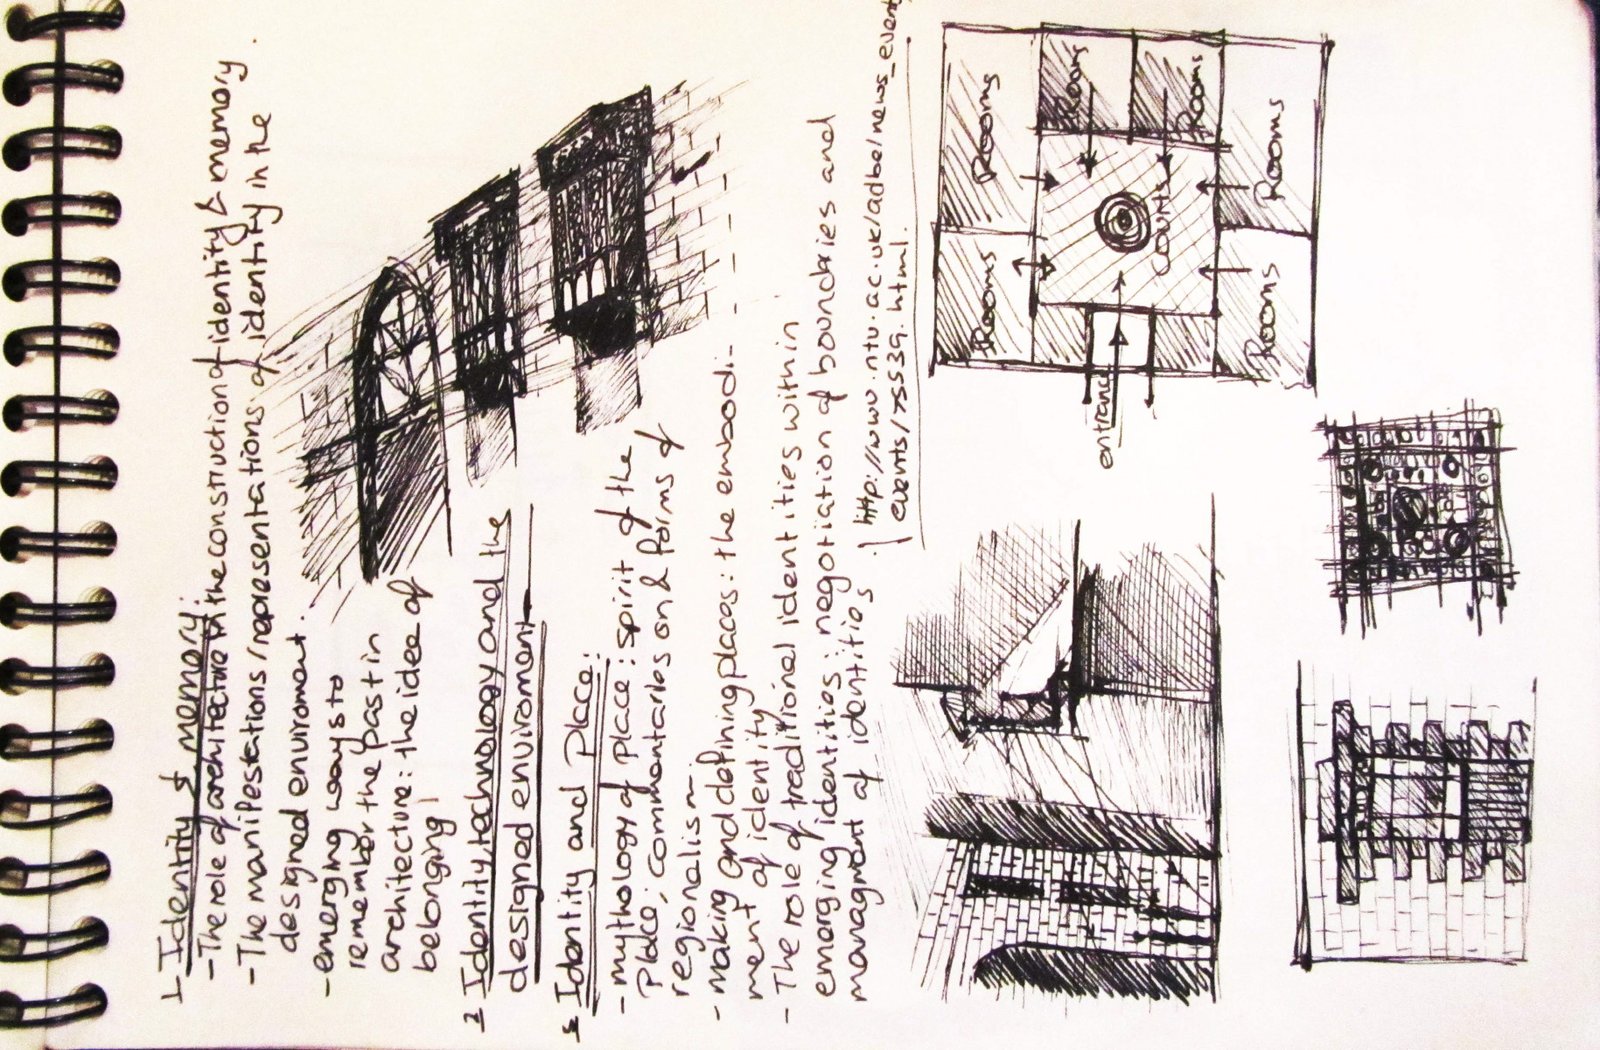 1 Identity & memory:
- The role of architecture in the construction of identity & memory
- The manifestations/representations of identity in the
designed enviroment.
- emerging ways to
remember the past in
architecture: the idea of
belonging
2 Identity, technology and the
designed enviroment
3 Identity and place:
- mythology of place: spirit of the
place; commentaries on & forms of
regionalism.
- making and defining places: the embodi-
ment of identity
- The role of traditional identities within
emerging identities; negotiation of boundries and
managment of identities.
http://www.ntu.ac.uk/adbe/news_events/
events/75539.html.
Rooms
Rooms
Rooms
Rooms
Rooms
Rooms
courts
entrance